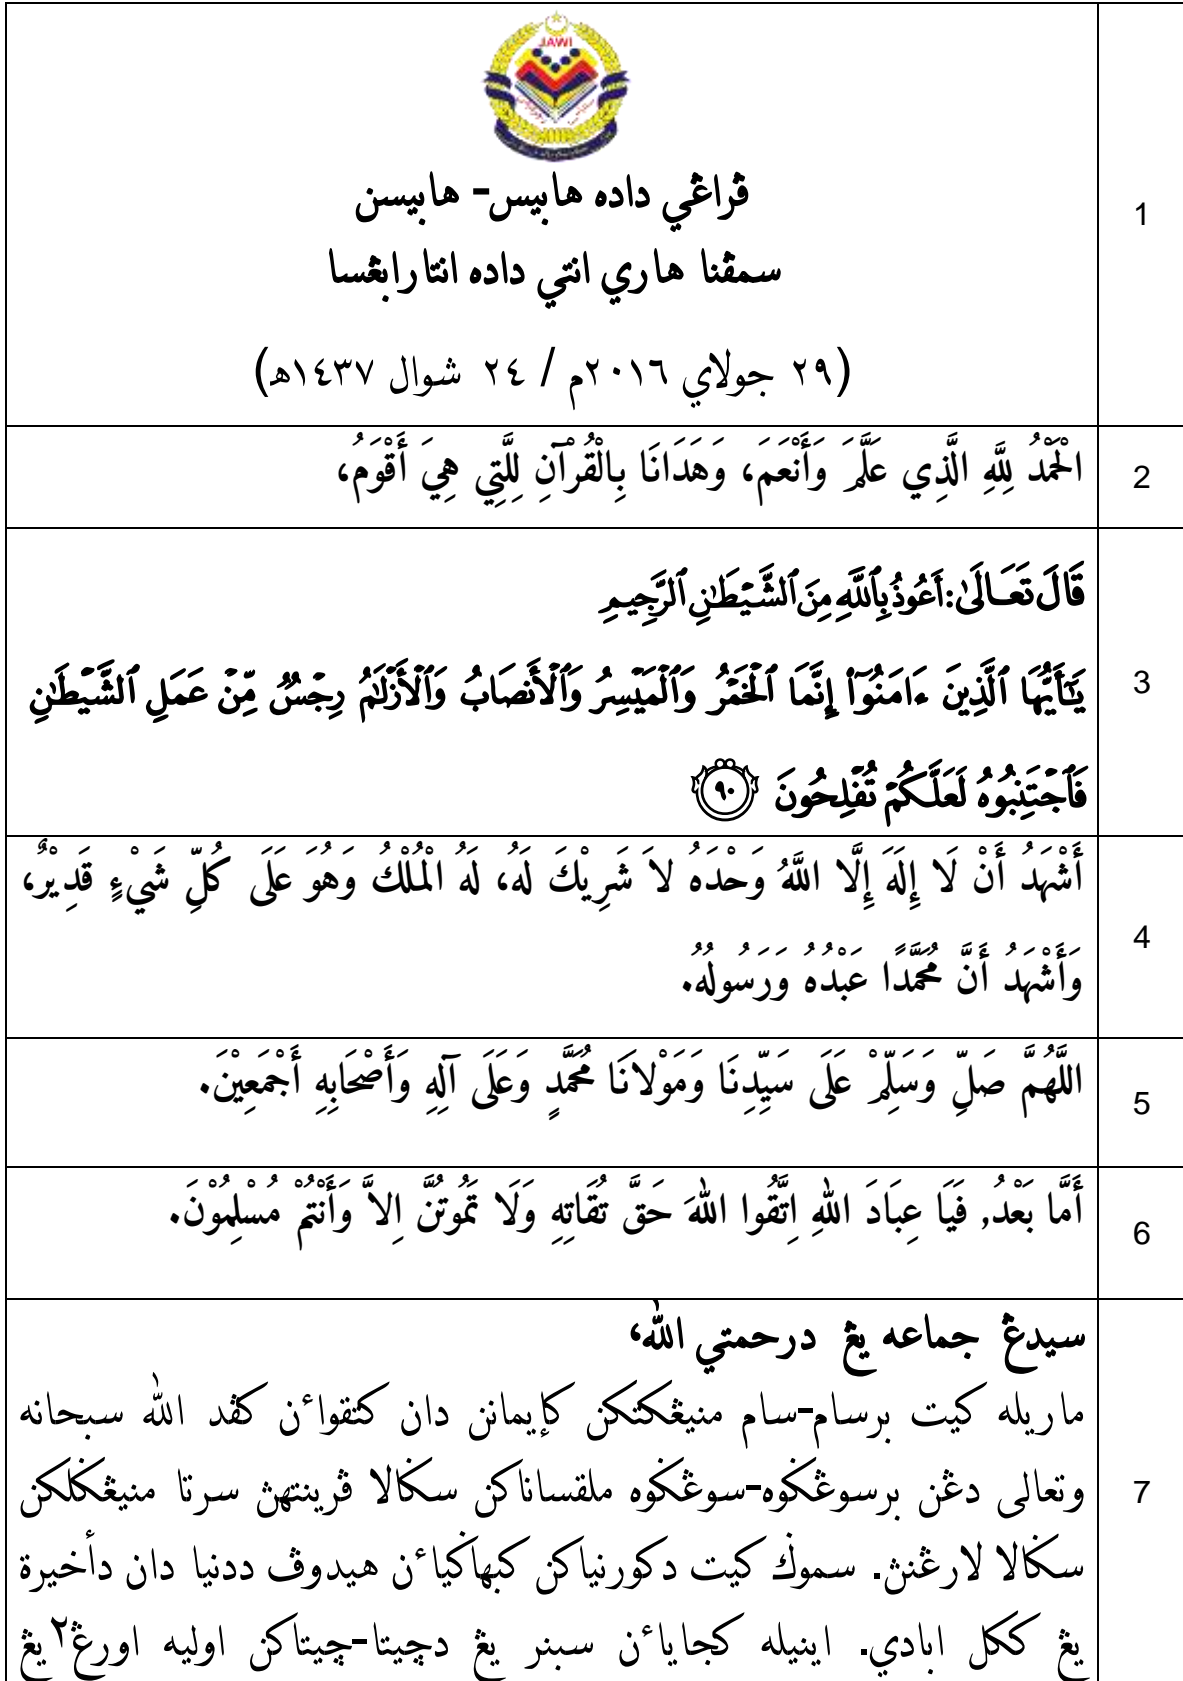 JAWI
ڤراڠي داده هابيس- هابيسن
سمڤنا هاري انتي داده انتارابڠسا
(٢٩ جولاي ٢٠١٦م / ٢٤ شوال ١٤٣٧هـ)
1
الْحَمْدُ لِلَّهِ الَّذِي عَلَّمَ وَأَنْعَمَ، وَهَدَانَا بِالْقُرْآنِ لِلَّتِي هِيَ أَقْوَمُ،
2
قَالَ تَعَالَىٰ: أَعُوذُ بِٱللَّهِ مِنَ ٱلشَّيْطَٰنِ ٱلرَّجِيمِ
يَٰٓأَيُّهَا ٱلَّذِينَ ءَامَنُوٓاْ إِنَّمَا ٱلْخَمْرُ وَٱلْمَيْسِرُ وَٱلْأَنصَابُ وَٱلْأَزْلَٰمُ رِجْسٌ مِّنْ عَمَلِ ٱلشَّيْطَٰنِ
فَٱجْتَنِبُوهُ لَعَلَّكُمْ تُفْلِحُونَ ٩٠
3
أَشْهَدُ أَنْ لَا إِلَهَ إِلَّا اللَّهُ وَحْدَهُ لاَ شَرِيْكَ لَهُ، لَهُ الْمُلْكُ وَهُوَ عَلَى كُلِّ شَيْءٍ قَدِيْرٌ،
وَأَشْهَدُ أَنَّ مُحَمَّدًا عَبْدُهُ وَرَسُولُهُ.
4
اللَّهُمَّ صَلِّ وَسَلِّمْ عَلَى سَيِّدِنَا وَمَوْلانَا مُحَمَّدٍ وَعَلَى آلِهِ وَأَصْحَابِهِ أَجْمَعِيْنَ.
5
أَمَّا بَعْدُ, فَيَا عِبَادَ اللهِ اِتَّقُوا اللهَ حَقَّ تُقَاتِهِ وَلَا تَمُوتُنَّ اِلاَّ وَأَنْتُمْ مُسْلِمُوْنَ.
6
سيدڠ جماعه يڠ درحمتي الله،
ماريله كيت برسام-سام منيڠكتكن كإيمانن دان كتقواءن كڤد الله سبحانه
وتعالى دڠن برسوڠݢوه-سوڠݢوه ملقساناكن سݢالا ڤرينتهڽ سرتا منيڠݢلكن
سݢالا لارڠنڽ. سموݢ كيت دكورنياكن كبهاݢياءن هيدوڤ ددنيا دان دأخيرة
يڠ ككل ابادي. اينيله كجاياءن سبنر يڠ دچيتا-چيتاكن اوليه اورڠ٢ يڠ
7